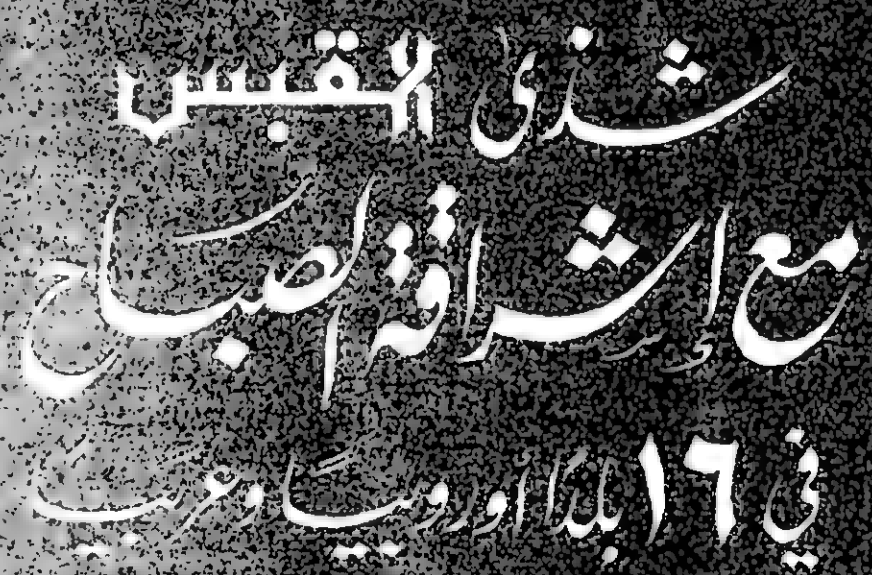 شذى القبس
مع إشراقة الصباح
في ١٦ بلدًا أوروبيًا وعربيًا